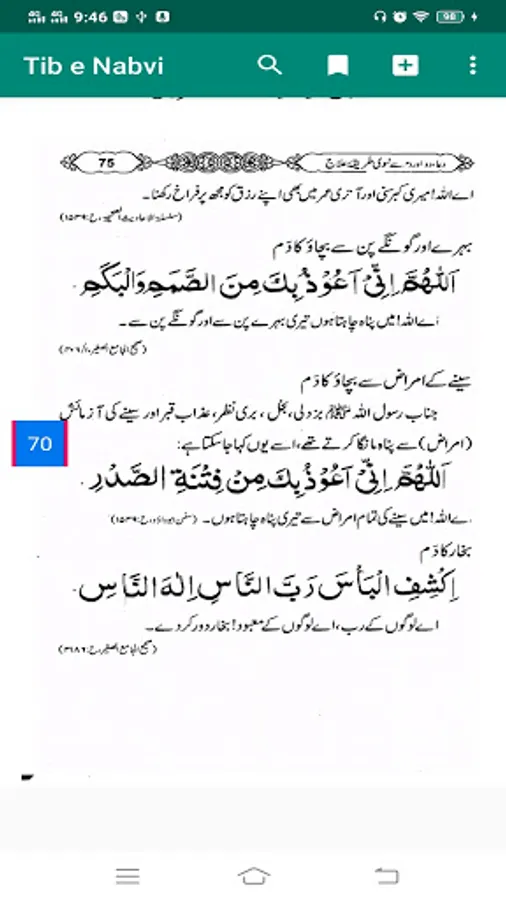 9:46
98
Tib e Nabvi
75
دعا، دوا اور دم سے نبوی طریقۂ علاج
اے اللہ! میری کبرسنی اور آخری عمر میں بھی اپنے رزق کو مجھ پر فراخ رکھنا۔
(سلسلۃ الاحادیث الصحیحہ، ح: ۱۵۳۹)
بہرے اور گونگے پن سے بچاؤ کا دَم
اَللّٰهُمَّ اِنِّیْ اَعُوْذُ بِكَ مِنَ الصَّمَمِ وَالْبَكَمِ.
اے اللہ! میں پناہ چاہتا ہوں تیری بہرے پن سے اور گونگے پن سے۔
(صحیح الجامع الصغیر،
سینے کے امراض سے بچاؤ کا دَم
جناب رسول اللہ ﷺ بزدلی، بخل، بری نظر، عذاب قبر اور سینے کی آزمائش
70
(امراض) سے پناہ مانگا کرتے تھے، اسے یوں کہا جاسکتا ہے:
اَللّٰهُمَّ اِنِّیْ اَعُوْذُ بِكَ مِنْ فِتْنَةِ الصَّدْرِ.
اے اللہ! میں سینے کی تمام امراض سے تیری پناہ چاہتا ہوں۔ (سنن ابوداؤد، ح: ۱۵۳۹)
بخار کا دَم
اِكْشِفِ الْبَأْسَ رَبَّ النَّاسِ اِلٰهَ النَّاسِ.
اے لوگوں کے رب، اے لوگوں کے معبود! بخار دور کردے۔
(صحیح الجامع الصغیر، ح: